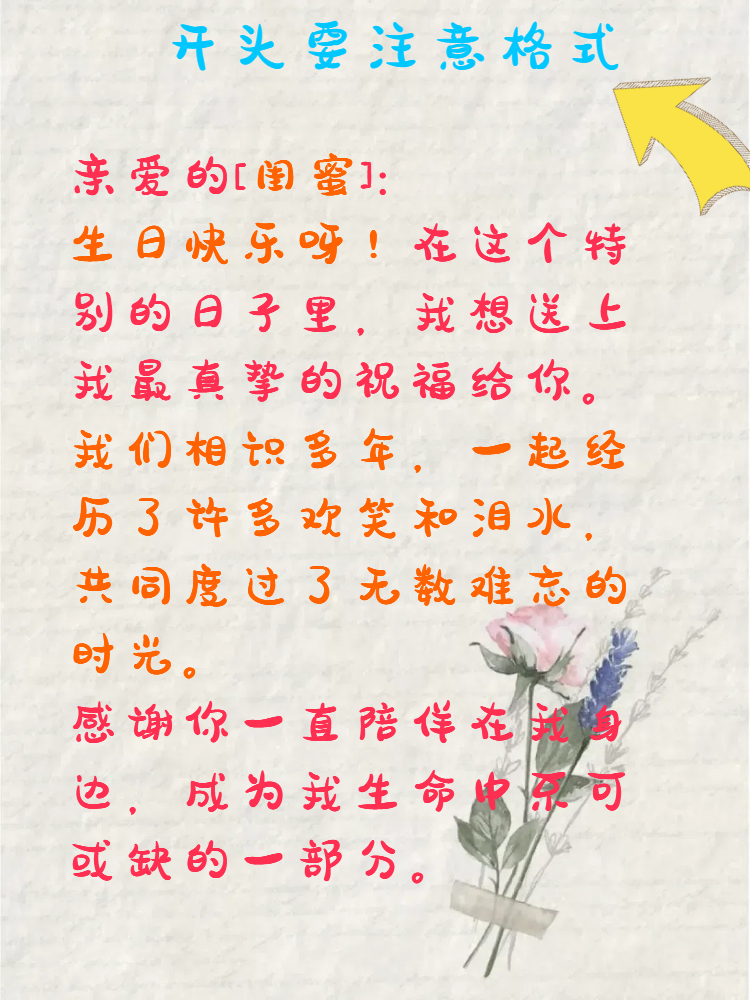 开头要注意格式
亲爱的[闺蜜]:
生日快乐呀！在这个特
别的日子里，我想送上
我最真挚的祝福给你。
我们相识多年，一起经
历了许多欢笑和泪水，
共同度过了无数难忘的
时光。
感谢你一直陪伴在我身
边，成为我生命中不可
或缺的一部分。